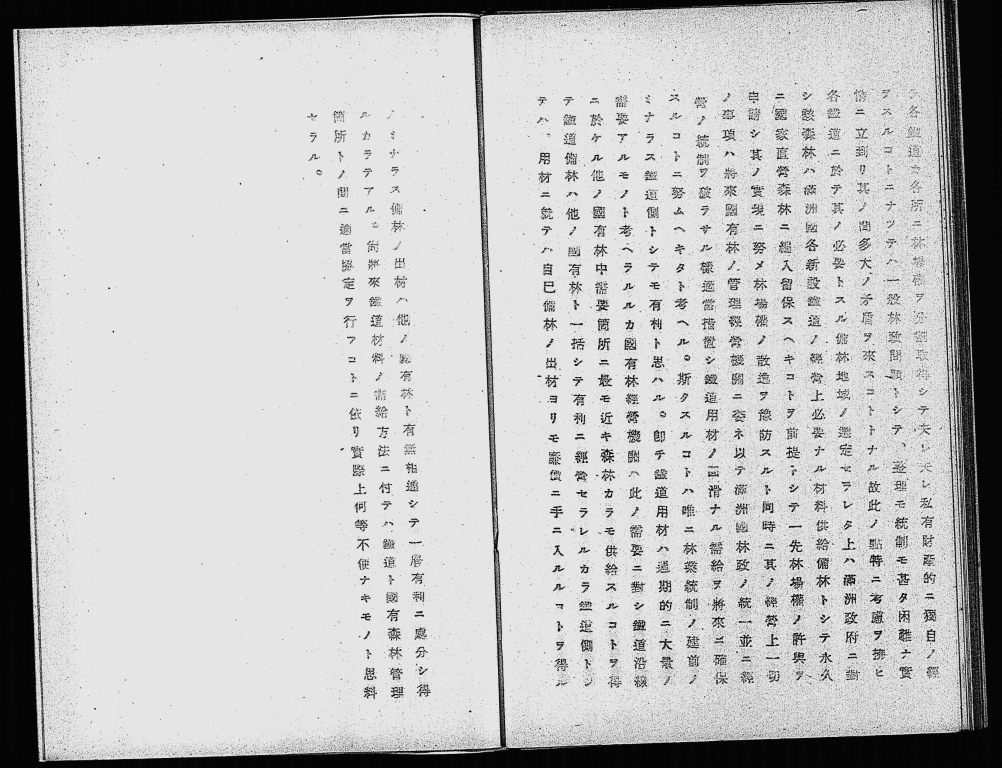 テ各鐵道カ各所ニ林場權ヲ分割取得シテ夫レ夫レ私有財產的ニ獨自ノ經
ヲスルコトニナツテハ一般林政問題トシテ、整理モ統制モ甚タ困難ナ實
情ニ立到リ其ノ間多大ノ矛盾ヲ來スコトトナル故此ノ點特ニ考慮ヲ拂ヒ
各鐵道ニ於テ其ノ必要トスル備林地域ノ選定セラレタ上ハ滿洲政府ニ對
シ該森林ハ滿洲國各新設鐵道ノ經營上必要ナル材料供給備林トシテ永久
ニ國家直營森林ニ編入留保スヘキコトヲ前提トシテ一先林場權ノ許與ヲ
申請シ其ノ實現ニ努メ林場權ノ散逸ヲ豫防スルト同時ニ其ノ經營上一切
ノ事項ハ將來國有林ノ管理經營機關ニ委ネ以テ滿洲國林政ノ統一並ニ經
營ノ統制ヲ破ラサル樣適當措置シ鐵道用材ノ圓滑ナル需給ヲ將來ニ確保
スルコトニ努ムヘキタト考ヘル。斯クスルコトハ唯ニ林業統制ノ建前ノ
ミナラス鐵道側トシテモ有利ト思ハル。卽テ鐵道用材ハ週期的ニ大量ノ
需要アルモノト考ヘラルルカ國有林經營機關ハ此ノ需要ニ對シ鐵道沿線
ニ於ケル他ノ國有林中需要箇所ニ最モ近キ森林カラモ供給スルコトヲ得
テ鐵道備林ハ他ノ國有林ト一括シテ有利ニ經營セラレルカラ鐵道側トシ
テハ、用材ニ就テハ自己備林ノ出材ヨリモ廉價ニ手ニ入ルルコトヲ得ル
ノミナラス備林ノ出材ハ他ノ國有林ト有無相通シテ一層有利ニ處分シ得
ルカラテアル。尙將來鐵道材料ノ需給方法ニ付テハ鐵道ト國有森林管理
箇所トノ間ニ適當協定ヲ行フコトニ依リ實際上何等不便ナキモノト思料
セラル。